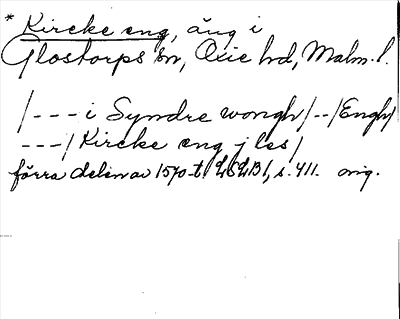 * Kircke eng, äng i
Glostorps sn, Oxie hd, Malm. l.
/--- i Syndre wongh/--/Engh/
---/ Kircke eng j les/
förra delen av 1570-t. LSLB1, s. 411. orig.